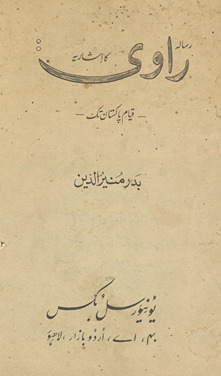 رسالہ
راوی
کا اشاریہ
— قیام پاکستان تک —
بدر منیر الدین
یونیورسل بکس
۴۰، اے، اردو بازار، لاہور